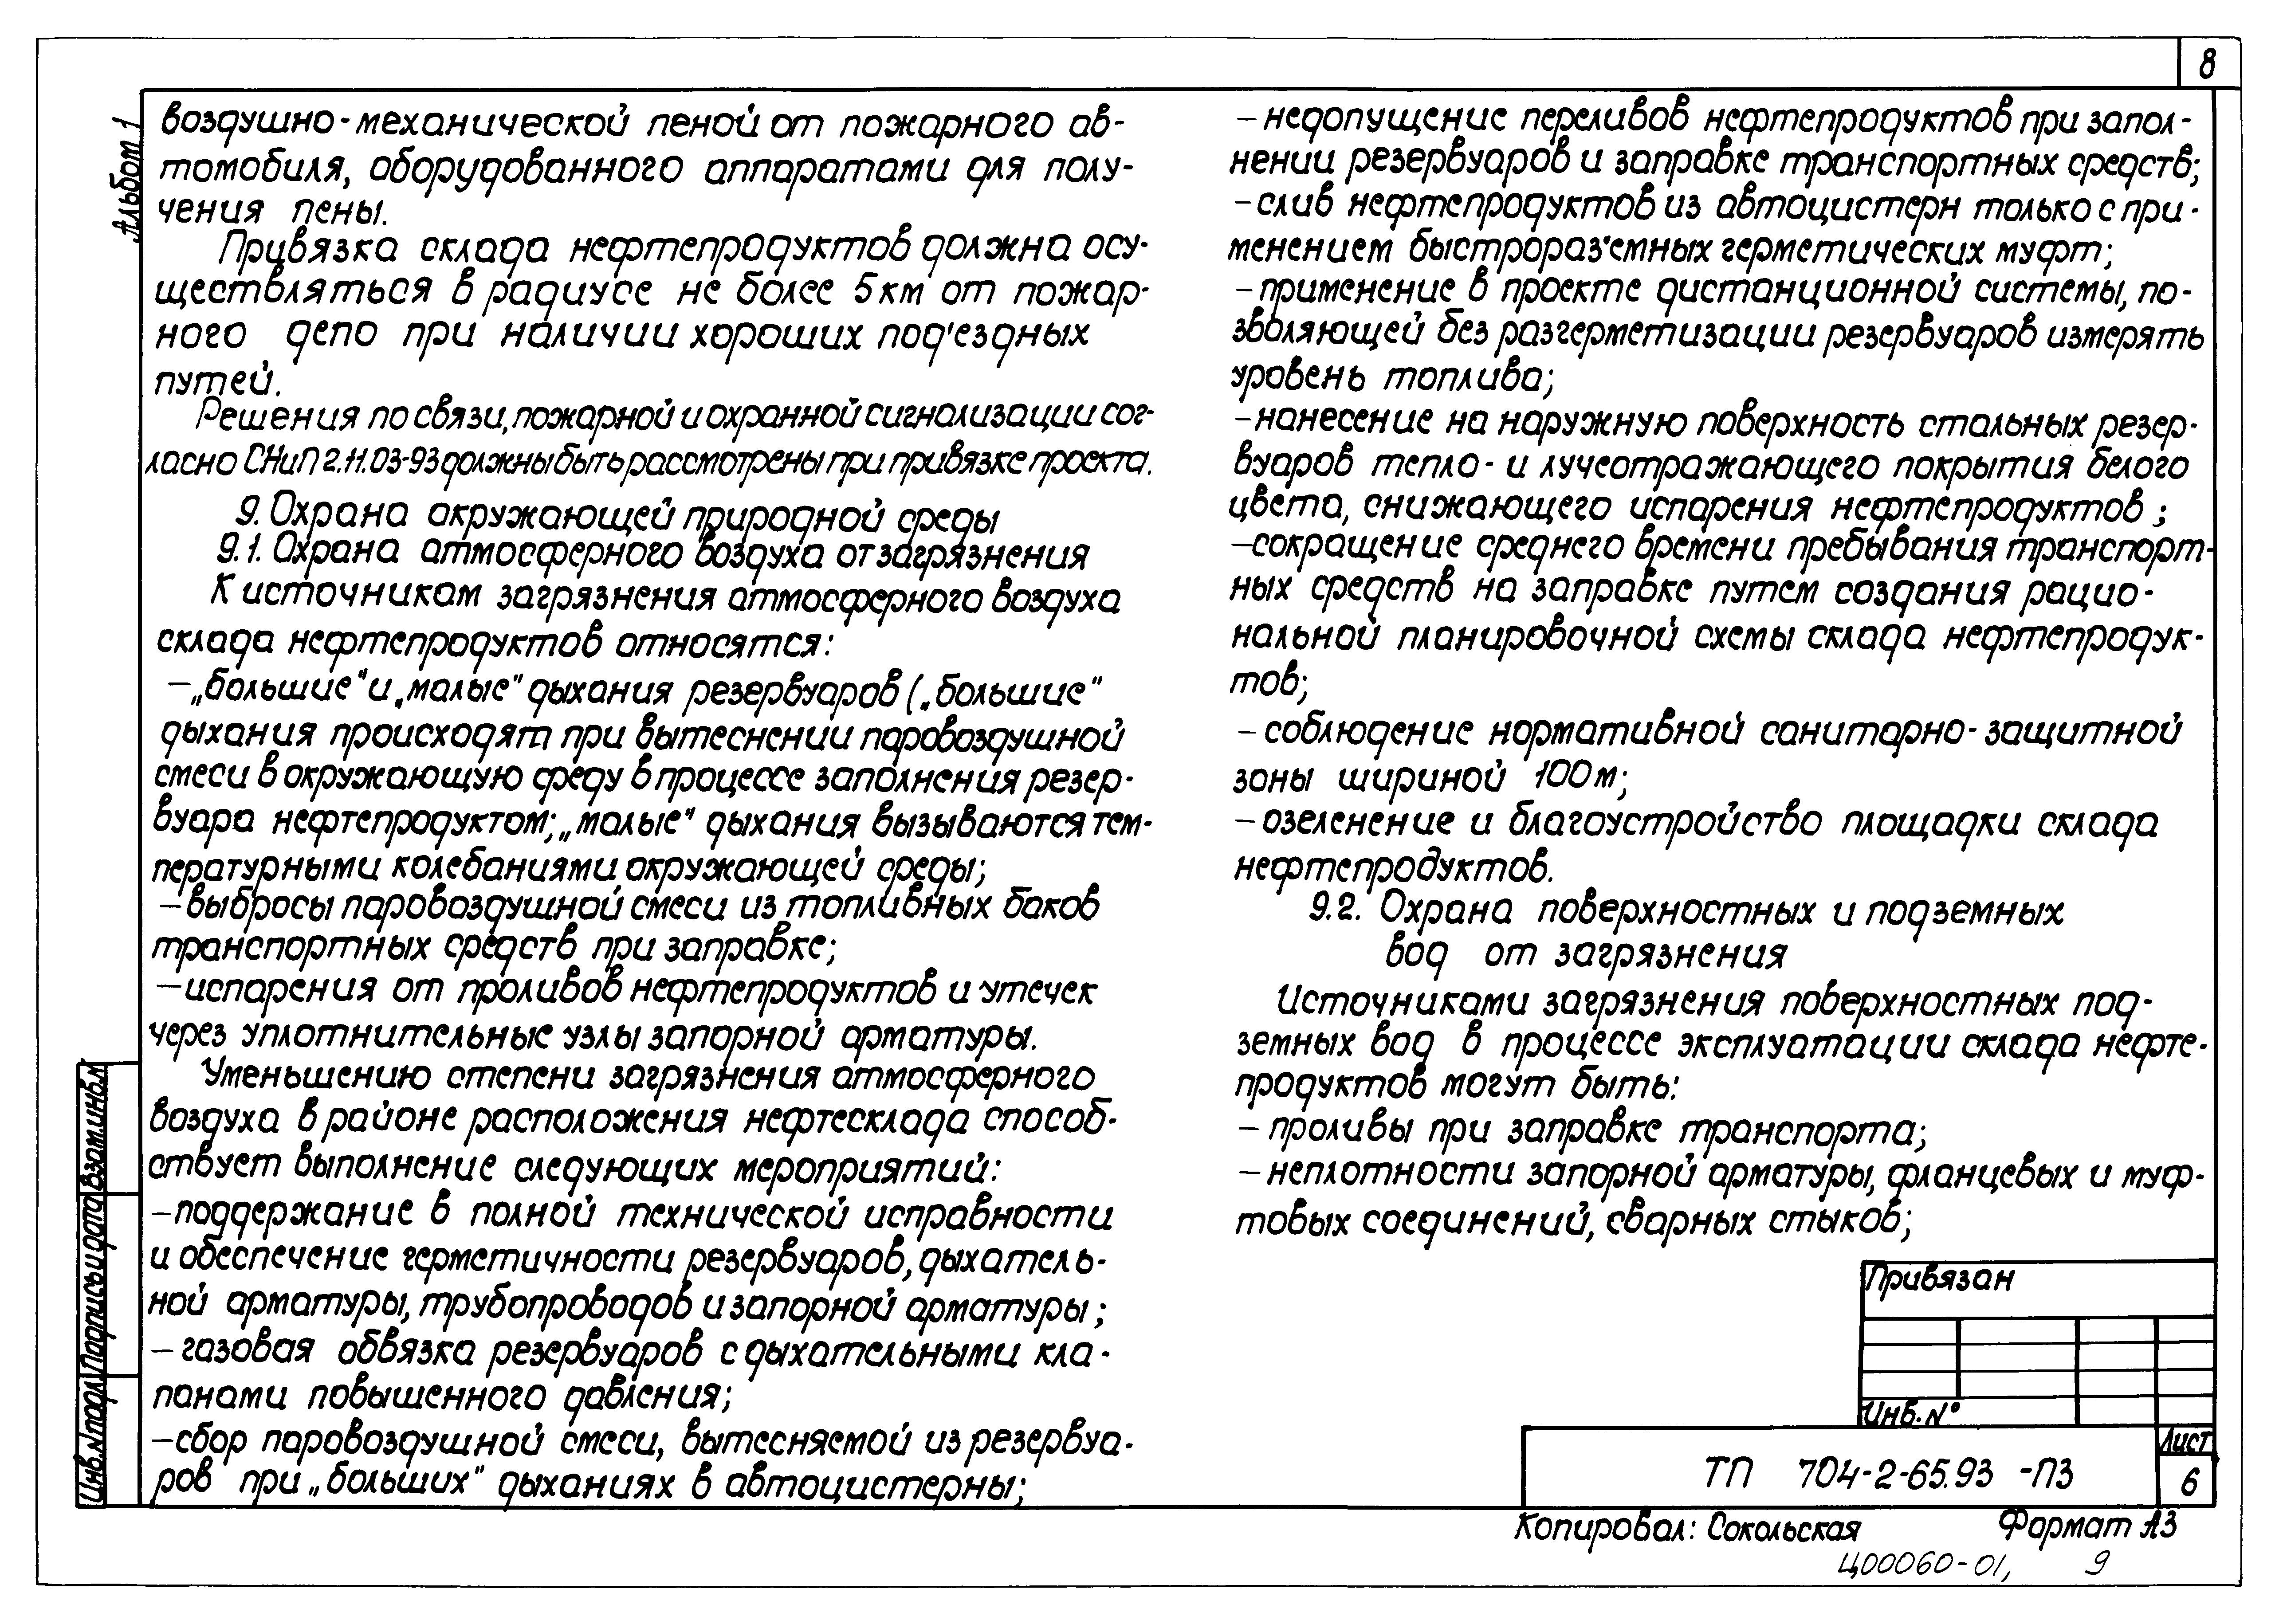 8
Альбом 1
воздушно-механической пеной от пожарного ав-
томобиля, оборудованного аппаратами для полу-
чения пены.
Привязка склада нефтепродуктов должна осу-
ществляться в радиусе не более 5км от пожар-
ного депо при наличии хороших под'ездных
путей.
Решения по связи, пожарной и охранной сигнализации сог-
ласно СНиП 2.11.03-93 должны быть рассмотрены при привязке проекта.
9. Охрана окружающей природной среды
9.1. Охрана атмосферного воздуха от загрязнения
К источникам загрязнения атмосферного воздуха
склада нефтепродуктов относятся:
– „большие" и „малые" дыхания резервуаров („большие"
дыхания происходят при вытеснении паровоздушной
смеси в окружающую среду в процессе заполнения резер-
вуара нефтепродуктом; „малые" дыхания вызываются тем-
пературными колебаниями окружающей среды;
– выбросы паровоздушной смеси из топливных баков
транспортных средств при заправке;
– испарения от проливов нефтепродуктов и утечек
через уплотнительные узлы запорной арматуры.
Уменьшению степени загрязнения атмосферного
воздуха в районе расположения нефтесклада способ-
ствует выполнение следующих мероприятий:
– поддержание в полной технической исправности
и обеспечение герметичности резервуаров, дыхатель-
ной арматуры, трубопроводов и запорной арматуры;
– газовая обвязка резервуаров с дыхательными кла-
панами повышенного давления;
– сбор паровоздушной смеси, вытесняемой из резервуа-
ров при „больших" дыханиях в автоцистерны;
– недопущение переливов нефтепродуктов при запол-
нении резервуаров и заправке транспортных средств;
– слив нефтепродуктов из автоцистерн только с при-
менением быстрораз'емных герметических муфт;
– применение в проекте дистанционной системы, по-
зволяющей без разгерметизации резервуаров измерять
уровень топлива;
– нанесение на наружную поверхность стальных резер-
вуаров тепло- и лучеотражающего покрытия белого
цвета, снижающего испарения нефтепродуктов;
– сокращение среднего времени пребывания транспорт-
ных средств на заправке путем создания рацио-
нальной планировочной схемы склада нефтепродук-
тов;
– соблюдение нормативной санитарно-защитной
зоны шириной 100м;
– озеленение и благоустройство площадки склада
нефтепродуктов.
9.2. Охрана поверхностных и подземных
вод от загрязнения
Источниками загрязнения поверхностных под-
земных вод в процессе эксплуатации склада нефте-
продуктов могут быть:
– проливы при заправке транспорта;
– неплотности запорной арматуры, фланцевых и муф-
товых соединений, сварных стыков;
Привязан
Инв.N°
ТП 704-2-65.93 -ПЗ
Лист
6
Инв.Nподл.
Подпись и дата
Взам.инв.N
Копировал: Сокольская
Формат А3
Ц00060-01, 9